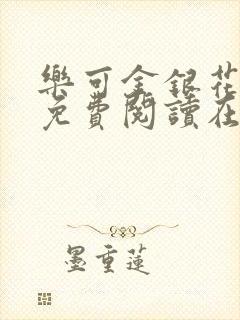 樂可金銀花
免費閱讀在
墨重蓮